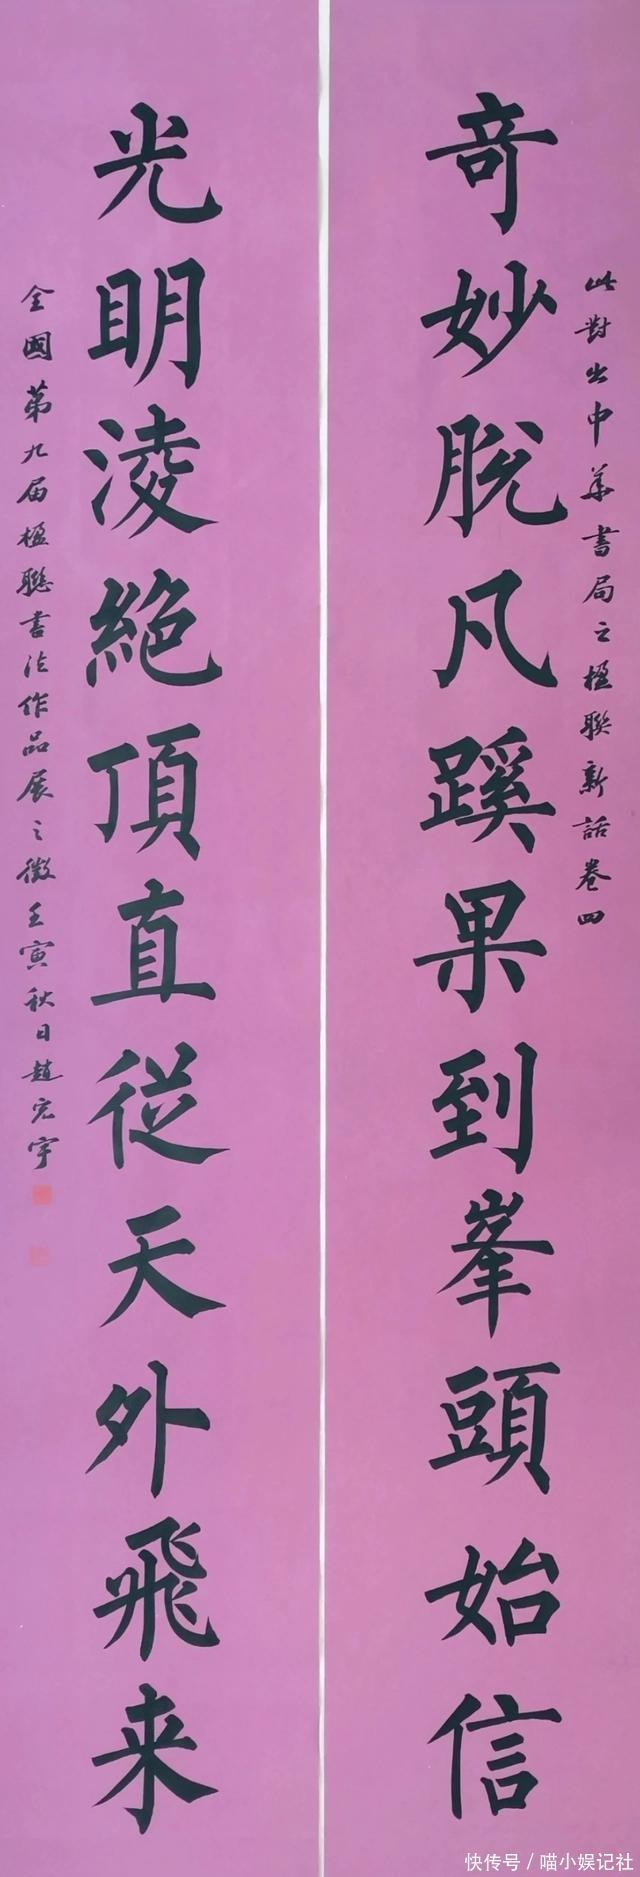 此對出中華書局之楹聯新話卷四
奇妙脫凡蹊果到峯頭始信
光明淩絶頂直從天外飛来
全國第九届楹聯書法作品展之徵壬寅秋日趙宏宇
快传号/喵小娱记社